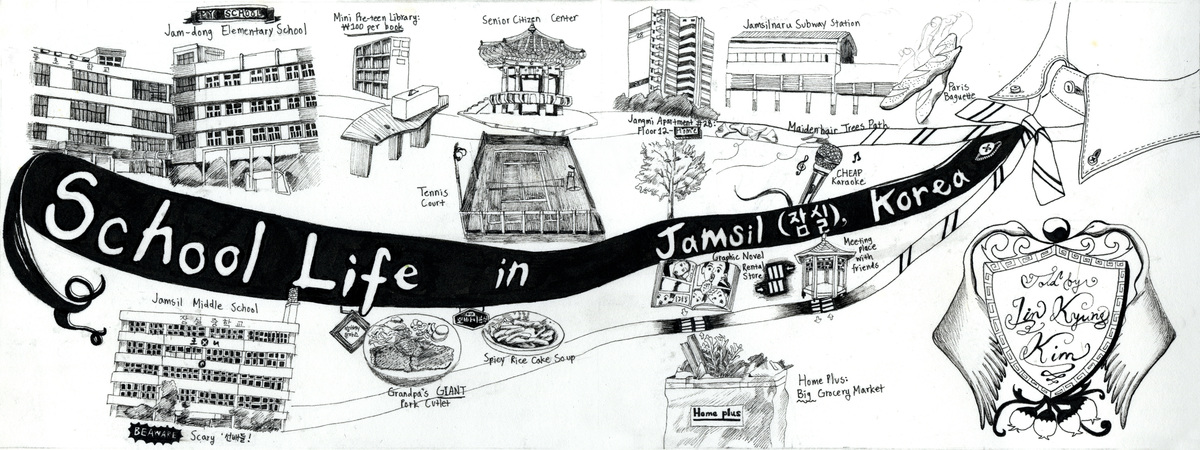 Jam-dong Elementary School
Mini Pre-teen Library:
₩100 per book
Senior Citizen Center
Jamsilnaru Subway Station
Paris
Baguette
Jangmi Apartment #28:
Floor 12- Home
Maidenhair Trees Path
CHEAP
Karaoke
Tennis
Court
School Life in Jamsil (잠실), Korea
Graphic Novel
Rental
Store
Meeting
place
with
friends
Jamsil Middle School
잠실중학교
Grandpa's GIANT
Pork Cutlet
Spicy Rice Cake Soup
BEAWARE Scary '선배들!'
Home plus
Home Plus:
Big Grocery Market
Told by
Jin Kyung
Kim